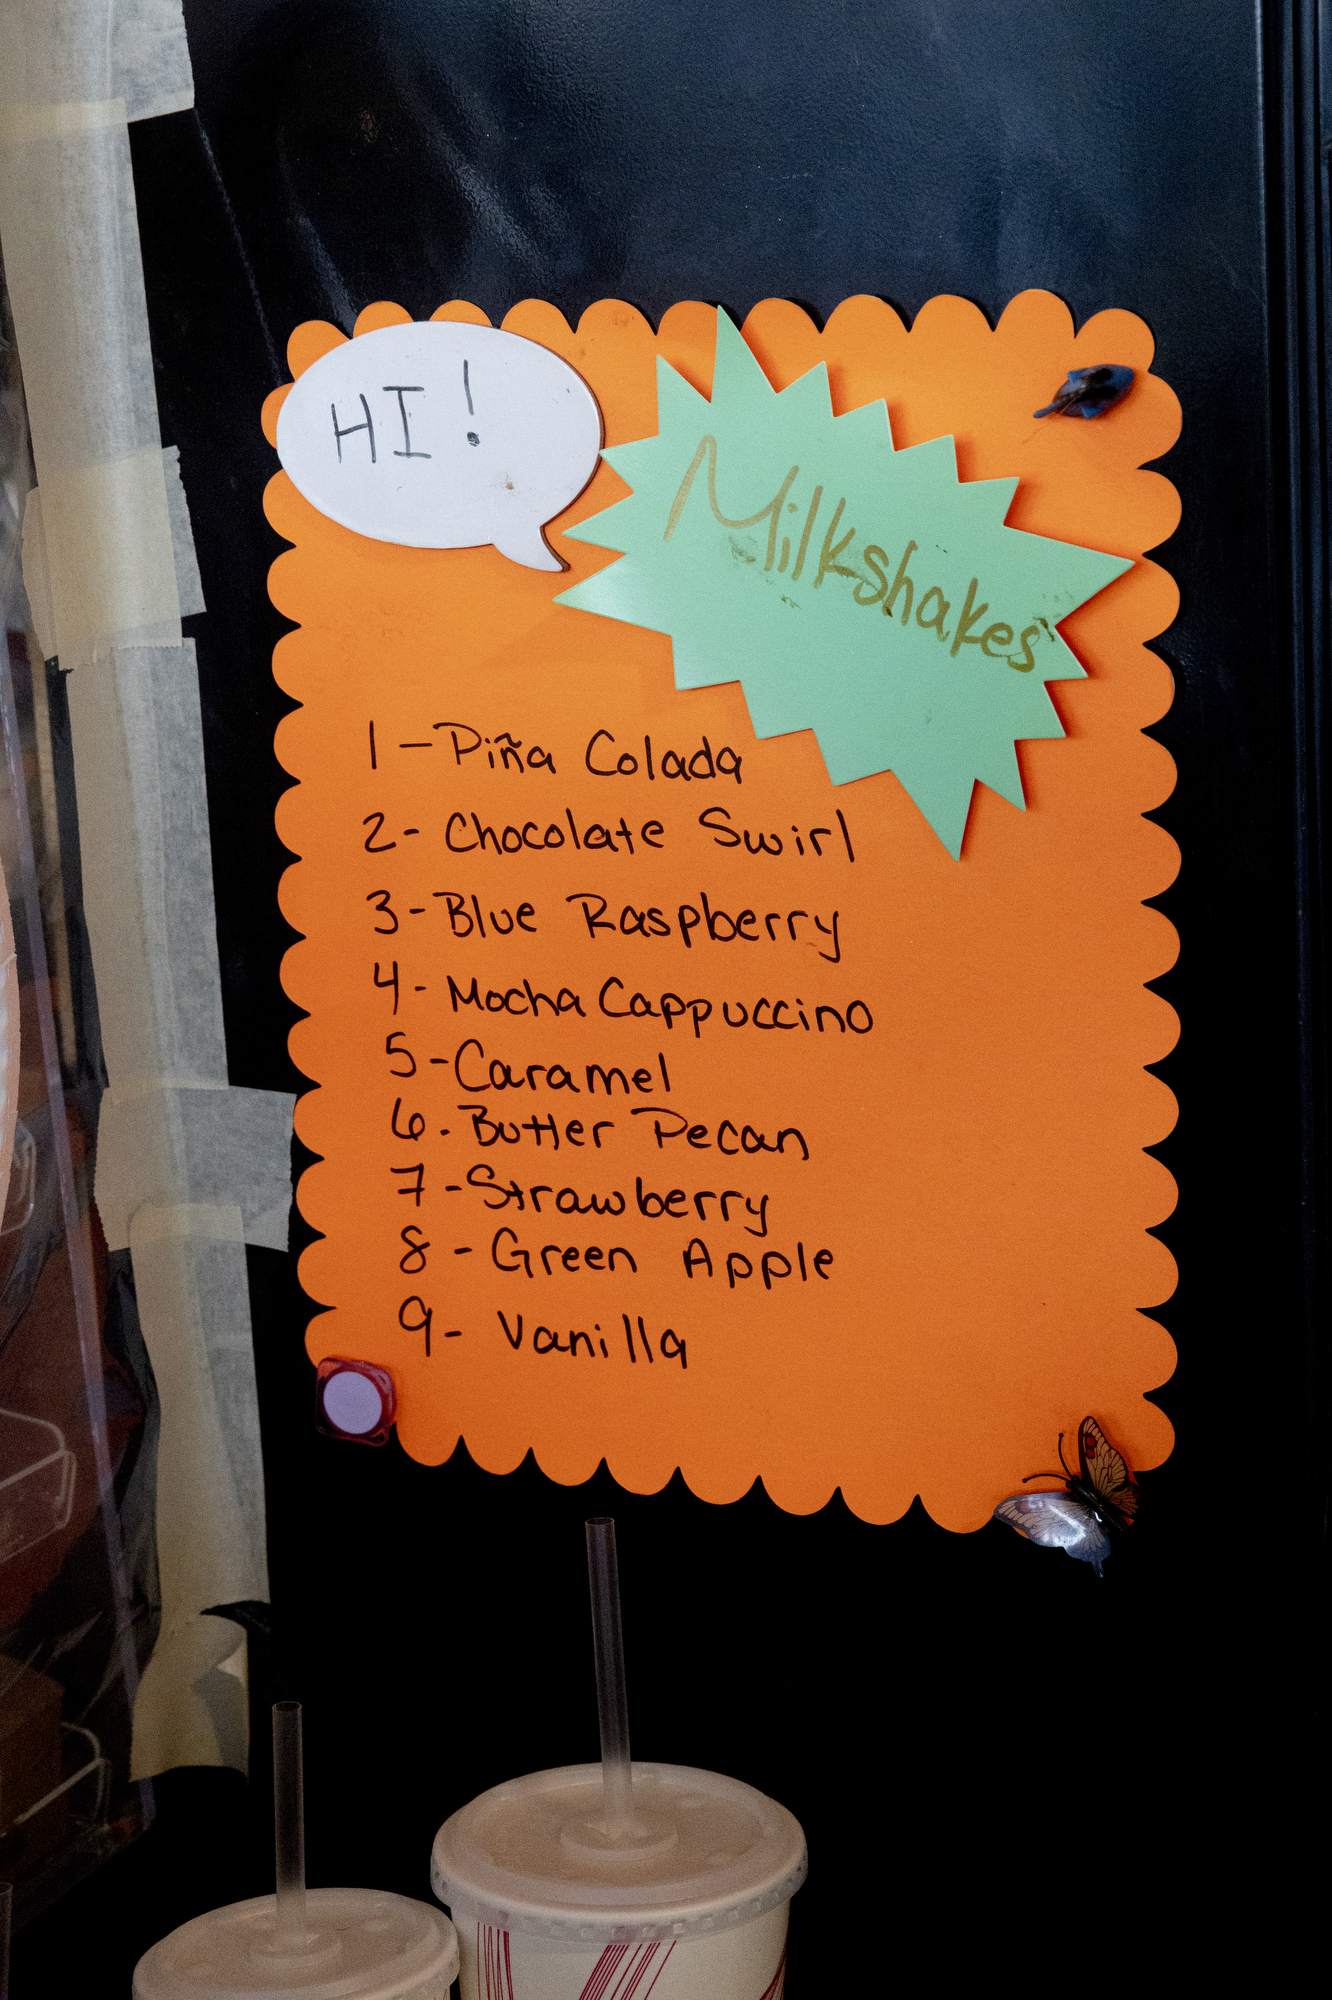 HI!
Milkshakes
1 - Piña Colada
2 - Chocolate Swirl
3 - Blue Raspberry
4 - Mocha Cappuccino
5 - Caramel
6. Butter Pecan
7 - Strawberry
8 - Green Apple
9 - Vanilla